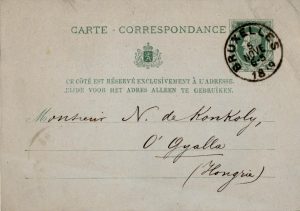 CARTE-CORRESPONDANCE
BRUXELLES
CE CÔTÉ EST RÉSERVÉ EXCLUSIVEMENT À L'ADRESSE.
ZIJDE VOOR HET ADRES ALLEEN TE GEBRUIKEN.
Monsieur N. de Konkoly,
O'Gyalla
(Hongrie)